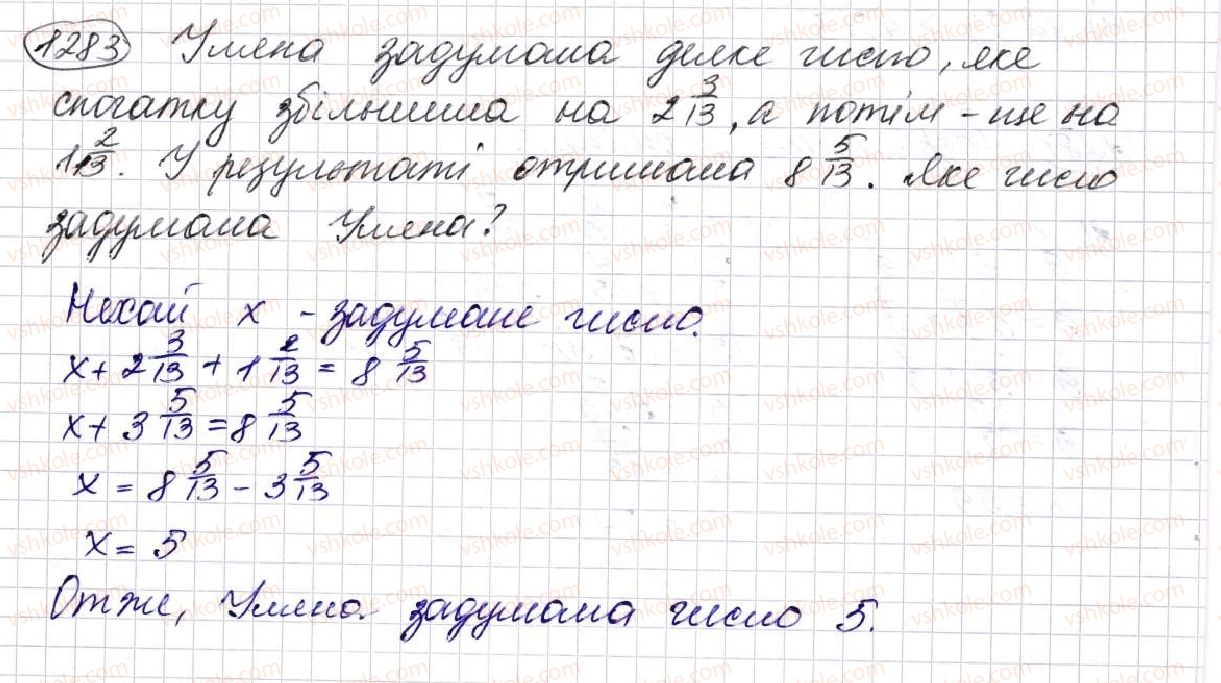 1283 Уляна задумала деяке число, яке
спочатку збільшила на 2 3/13, а потім - ще на
1 2/13. У результаті отримала 8 5/13. Яке число
задумала Уляна?
Нехай x - задумане число.
x + 2 3/13 + 1 2/13 = 8 5/13
x + 3 5/13 = 8 5/13
x = 8 5/13 - 3 5/13
x = 5
Отже, Уляна задумала число 5.